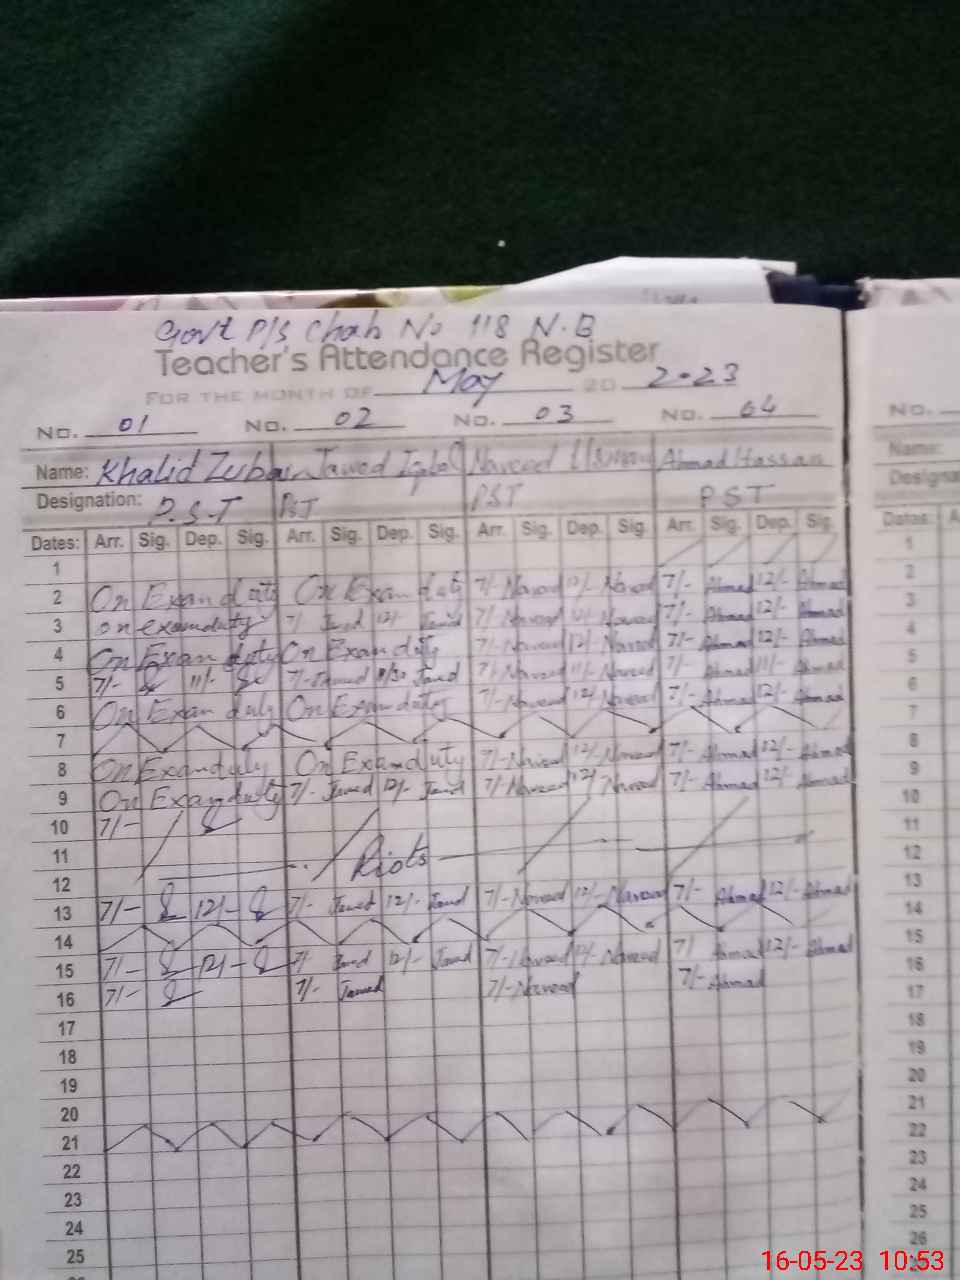 Govt P/S Chah No 118 N.B
Teacher's Attendance Register
FOR THE MONTH OF May 20 2-23
No. 01 No. 02 No. 03 No. 04
Name: Khalid Zubair Jawed Iqbal Naveed Ahmad Hassan
Designation: P.S.T PST PST PST
Dates: Arr. Sig. Dep. Sig. Arr. Sig. Dep. Sig. Arr. Sig. Dep. Sig. Arr. Sig. Dep. Sig.
1
2 On Exam duty On Exam duty 7/- Naveed 12/- Naveed 7/- Ahmad 12/- Ahmad
3 on exam duty 7/- Jawed 12/- Jawed 7/- Naveed 12/- Naveed 7/- Ahmad 12/- Ahmad
4 On Exam duty On Exam duty 7/- Naveed 12/- Naveed 7/- Ahmad 12/- Ahmad
5 7/- 11/- 7/- Jawed 11/30 Jawed 7/- Naveed 11/- Naveed 7/- Ahmad 11/- Ahmad
6 On Exam duty On Exam duty 7/- Naveed 12/- Naveed 7/- Ahmad 12/- Ahmad
7
8 On Exam duty On Exam duty 7/- Naveed 12/- Naveed 7/- Ahmad 12/- Ahmad
9 On Exam duty 7/- Jawed 12/- Jawed 7/- Naveed 12/- Naveed 7/- Ahmad 12/- Ahmad
10 7/-
11 Riots
12
13 7/- 12/- 7/- Jawed 12/- Jawed 7/- Naveed 12/- Naveed 7/- Ahmad 12/- Ahmad
14
15 7/- 12/- 7/- Jawed 12/- Jawed 7/- Naveed 12/- Naveed 7/ Ahmad 12/- Ahmad
16 7/- 7/- Jawed 7/- Naveed 7/- Ahmad
17
18
19
20
21
22
23
24
25
No.
Name:
Dates:
1
2
3
4
5
6
7
8
9
10
11
12
13
14
15
16
17
18
19
20
21
22
23
24
25
26
16-05-23 10:53